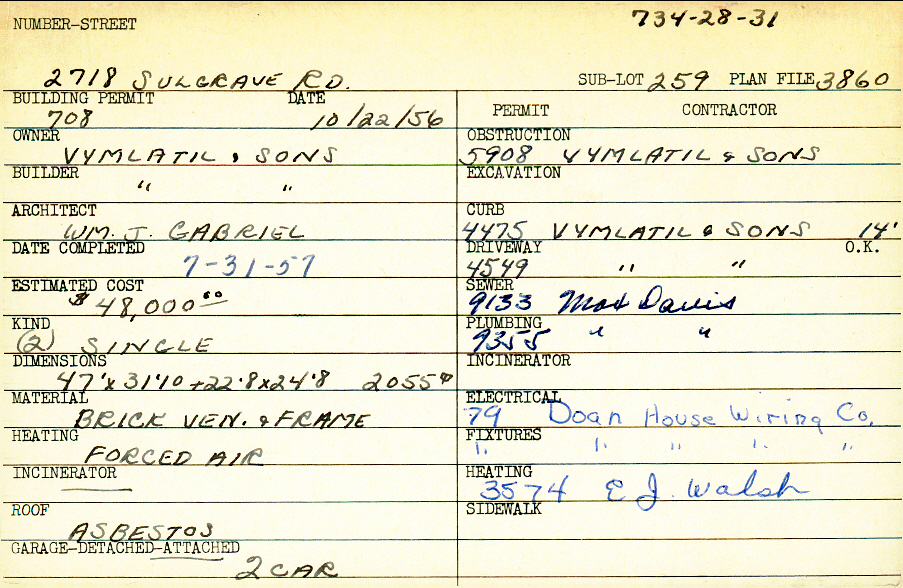 734-28-31
NUMBER-STREET
2718 SULGRAVE RD.
SUB-LOT 259 PLAN FILE 3860
BUILDING PERMIT DATE
708 10/22/56
OWNER
VYMLATIL & SONS
BUILDER
" "
ARCHITECT
WM. J. GABRIEL
DATE COMPLETED
7-31-57
ESTIMATED COST
$48,000.00
KIND
(2) SINGLE
DIMENSIONS
47'x31'10+22'8x24'8 2055▫
MATERIAL
BRICK VEN. & FRAME
HEATING
FORCED AIR
INCINERATOR
ROOF
ASBESTOS
GARAGE-DETACHED-ATTACHED
2 CAR
PERMIT CONTRACTOR
OBSTRUCTION
5908 VYMLATIL & SONS
EXCAVATION
CURB
4475 VYMLATIL & SONS 14'
DRIVEWAY O.K.
4549 " "
SEWER
9133 Max Davis
PLUMBING
9355 " "
INCINERATOR
ELECTRICAL
79 Doan House Wiring Co.
FIXTURES
" " " " "
HEATING
3574 E J. Walsh
SIDEWALK